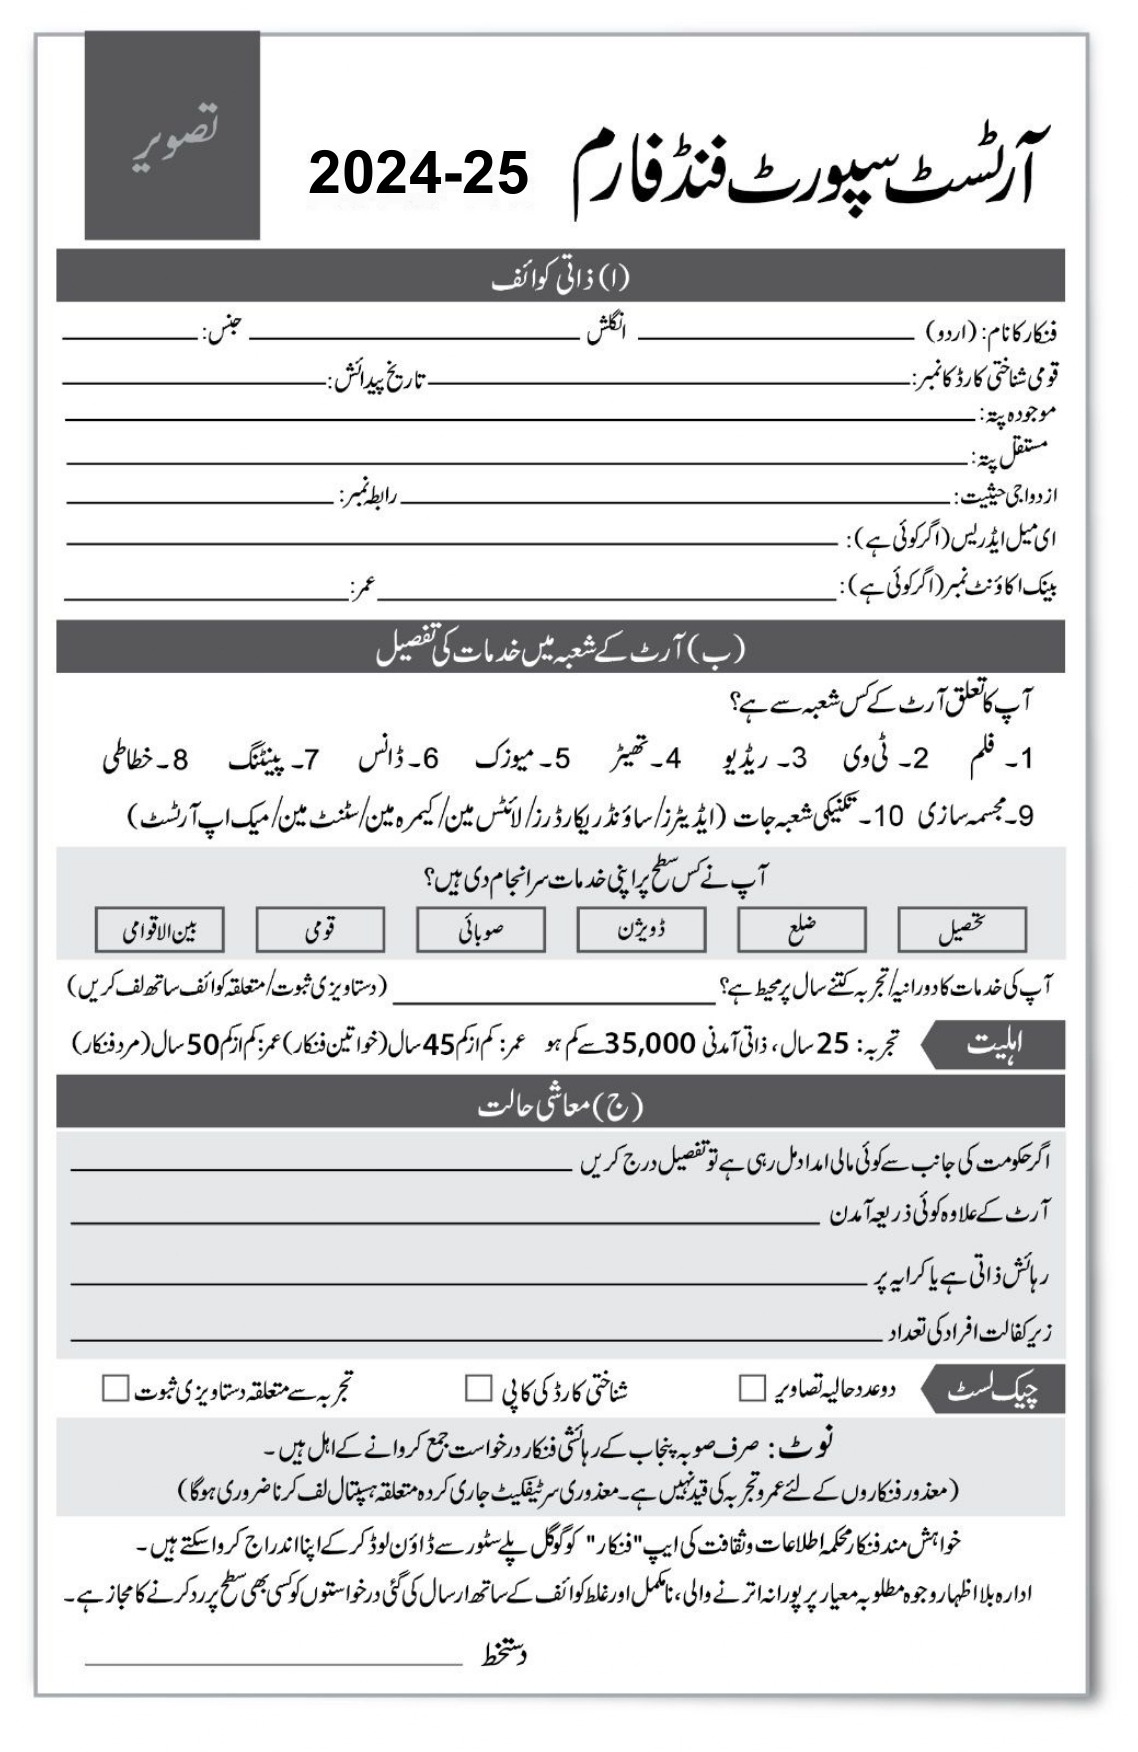 تصویر
آرٹسٹ سپورٹ فنڈ فارم 2024-25
(ا) ذاتی کوائف
فنکار کا نام: (اردو) ____ انگلش ____ جنس: ____
قومی شناختی کارڈ کا نمبر: ____ تاریخ پیدائش: ____
موجودہ پتہ: ____
مستقل پتہ: ____
ازدواجی حیثیت: ____ رابطہ نمبر: ____
ای میل ایڈریس (اگر کوئی ہے): ____
بینک اکاؤنٹ نمبر (اگر کوئی ہے): ____ عمر: ____
(ب) آرٹ کے شعبہ میں خدمات کی تفصیل
آپ کا تعلق آرٹ کے کس شعبہ سے ہے؟
1۔ فلم 2۔ ٹی وی 3۔ ریڈیو 4۔ تھیٹر 5۔ میوزک 6۔ ڈانس 7۔ پینٹنگ 8۔ خطاطی
9۔ مجسمہ سازی 10۔ تکنیکی شعبہ جات (ایڈیٹرز/ساؤنڈ ریکارڈرز/لائٹس مین/کیمرہ مین/سٹنٹ مین/میک اپ آرٹسٹ)
آپ نے کس سطح پر اپنی خدمات سرانجام دی ہیں؟
تحصیل ضلع ڈویژن صوبائی قومی بین الاقوامی
آپ کی خدمات کا دورانیہ/تجربہ کتنے سال پر محیط ہے؟ ____ (دستاویزی ثبوت/متعلقہ کوائف ساتھ لف کریں)
اہلیت تجربہ: 25 سال، ذاتی آمدنی 35,000 سے کم ہو عمر: کم از کم 45 سال (خواتین فنکار) عمر: کم از کم 50 سال (مرد فنکار)
(ج) معاشی حالت
اگر حکومت کی جانب سے کوئی مالی امداد مل رہی ہے تو تفصیل درج کریں ____
آرٹ کے علاوہ کوئی ذریعہ آمدن ____
رہائش ذاتی ہے یا کرایہ پر ____
زیر کفالت افراد کی تعداد ____
چیک لسٹ دو عدد حالیہ تصاویر □ شناختی کارڈ کی کاپی □ تجربہ سے متعلقہ دستاویزی ثبوت □
نوٹ: صرف صوبہ پنجاب کے رہائشی فنکار درخواست جمع کروانے کے اہل ہیں۔
(معذور فنکاروں کے لئے عمر و تجربہ کی قید نہیں ہے۔ معذوری سرٹیفکیٹ جاری کردہ متعلقہ ہسپتال لف کرنا ضروری ہوگا)
خواہش مند فنکار محکمہ اطلاعات و ثقافت کی ایپ "فنکار" کو گوگل پلے سٹور سے ڈاؤن لوڈ کر کے اپنا اندراج کروا سکتے ہیں۔
ادارہ بلا اظہار وجوہ مطلوبہ معیار پر پورا نہ اترنے والی، نامکمل اور غلط کوائف کے ساتھ ارسال کی گئی درخواستوں کو کسی بھی سطح پر رد کرنے کا مجاز ہے۔
دستخط ____